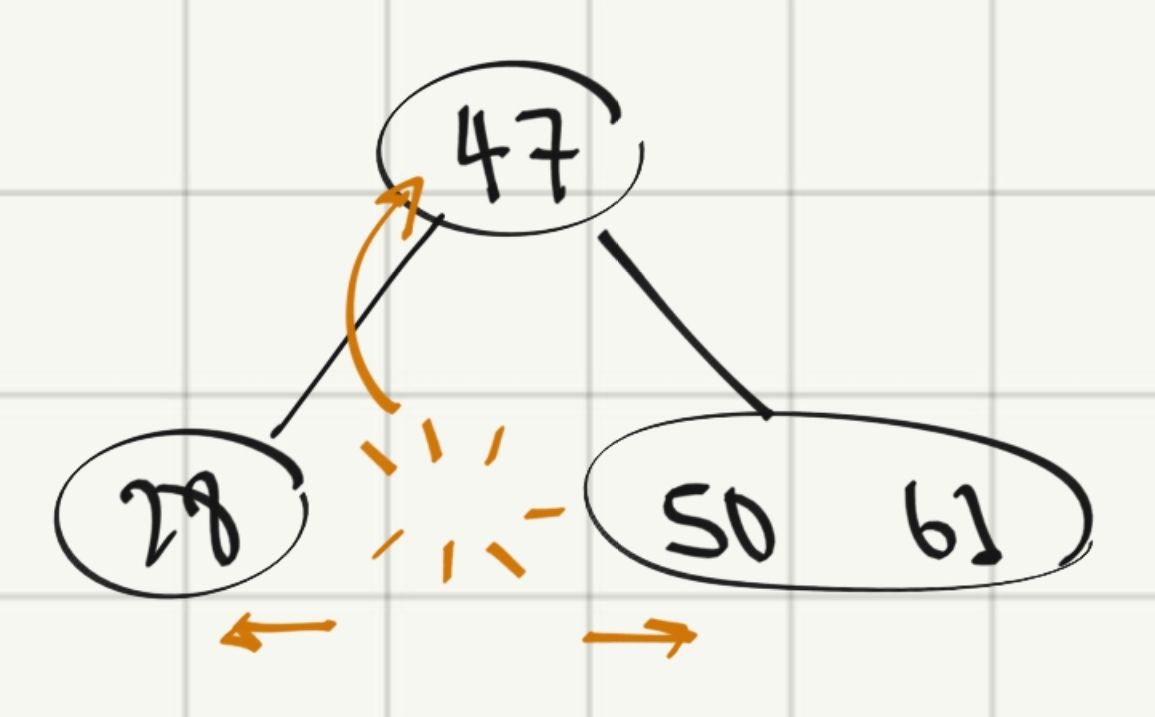 47
28 50 61